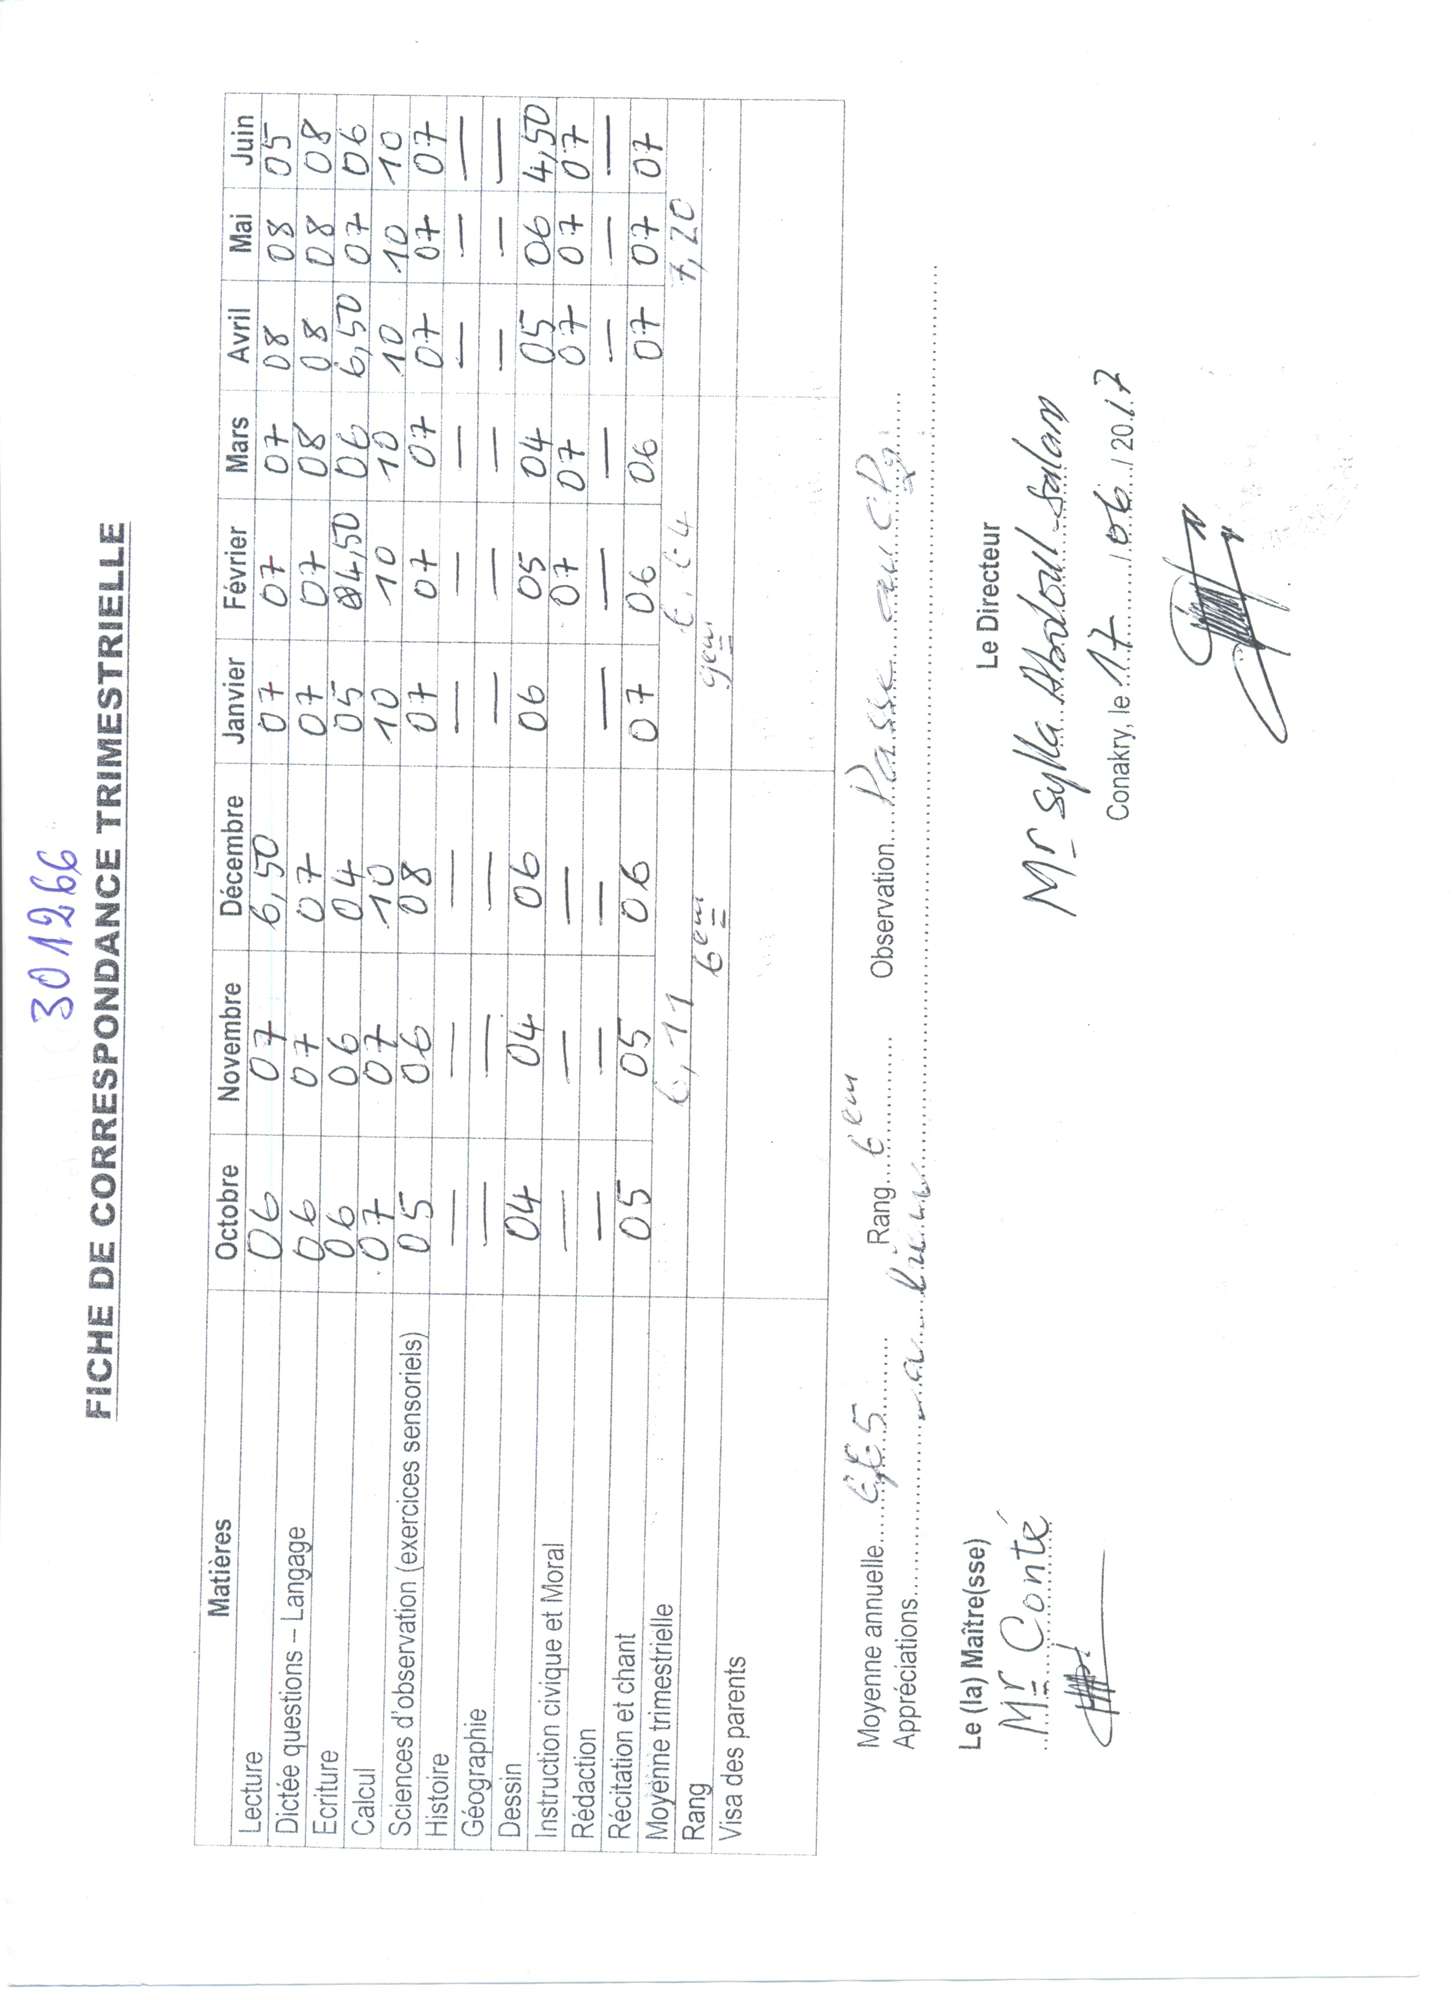 301266
FICHE DE CORRESPONDANCE TRIMESTRIELLE
Matières Octobre Novembre Décembre Janvier Février Mars Avril Mai Juin
Lecture 06 07 6,50 07 07 07 08 08 05
Dictée questions – Langage 06 07 07 07 07 08 08 08 08
Ecriture 06 06 04 05 4,50 06 6,50 07 06
Calcul 07 07 10 10 10 10 10 10 10
Sciences d'observation (exercices sensoriels) 05 06 08 07 07 07 07 07 07
Histoire — — — — — — — — —
Géographie — — — — — — — — —
Dessin 04 04 06 06 05 04 05 06 4,50
Instruction civique et Moral — — — 07 07 07 07 07
Rédaction — — — — — — — — —
Récitation et chant 05 05 06 07 06 06 07 07 07
Moyenne trimestrielle 6,11 7,20
Rang 6em 9em
Visa des parents
Moyenne annuelle Rang 6em Observation Passe au
Appréciations
Le (la) Maître(sse) Le Directeur
Mr Conté Mr Sylla Abdoul-Salam
Conakry, le 17/06/2017